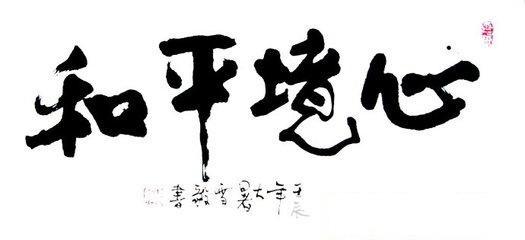 心境平和
壬辰年大暑雪毅書